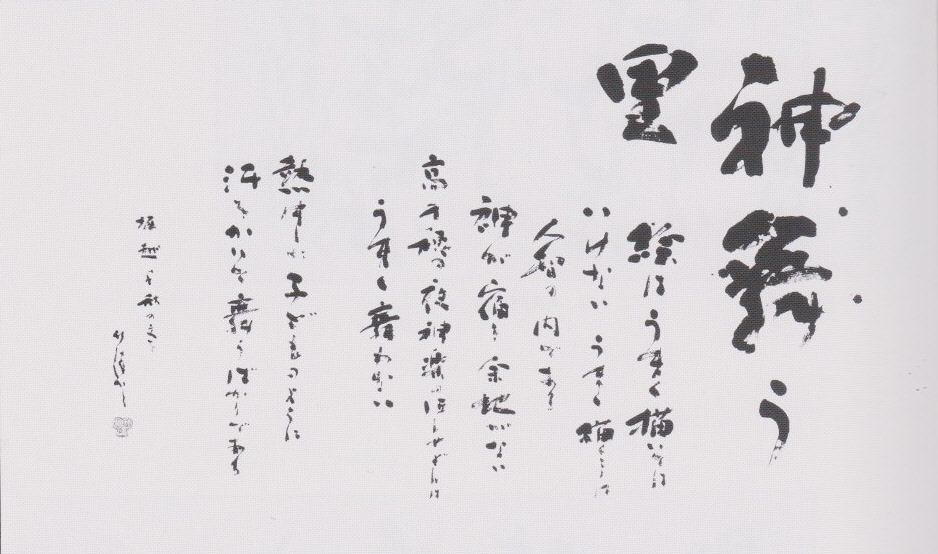 神舞う
里
絵はうまく描いては
いけない うまく描くことは
人智の内である
神が宿る余地がない
高千穂の夜神楽のほしゃどんは
うまく舞わない
熱中した子どものように
汗をかいて舞うばかりである
堀越千秋の文